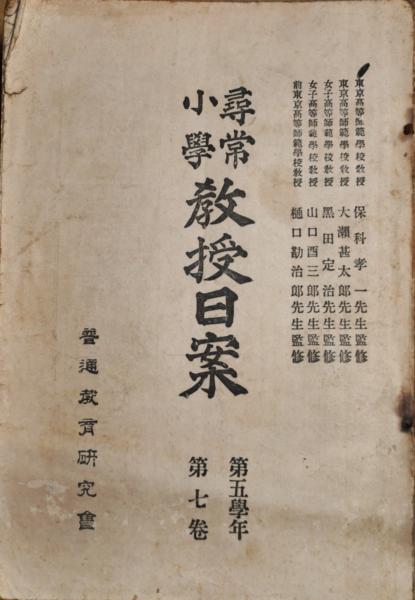 東京高等師範學校敎授 保科孝一先生監修
東京高等師範學校敎授 大瀨甚太郎先生監修
女子高等師範學校敎授 黑田定治先生監修
女子高等師範學校敎授 山口酉三郎先生監修
前東京高等師範學校敎授 樋口勘治郎先生監修
尋常
小學
敎授日案
第五學年
第七卷
普通敎育硏究會